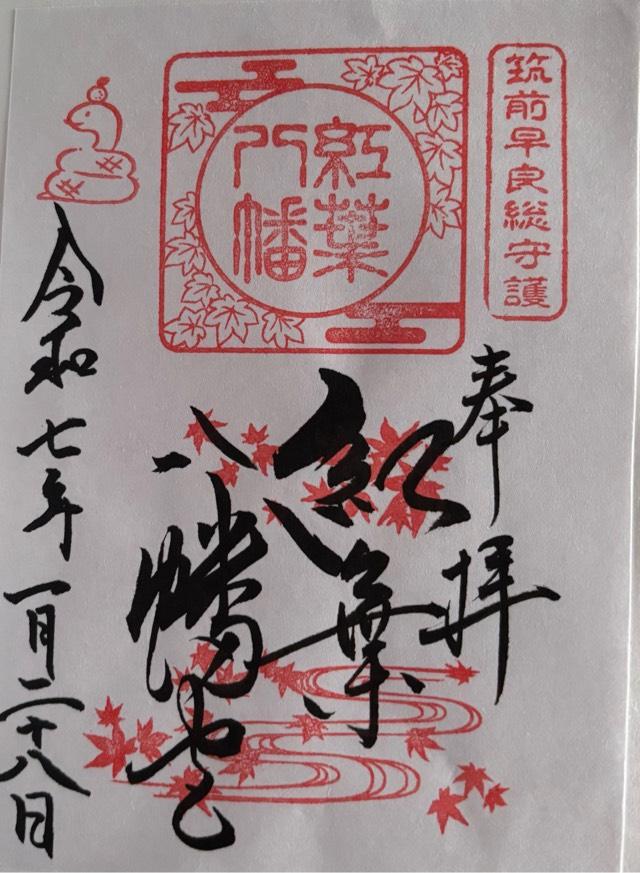 筑前早良総守護
奉拝
紅葉
八幡
紅葉
八幡宮
令和七年一月二十八日